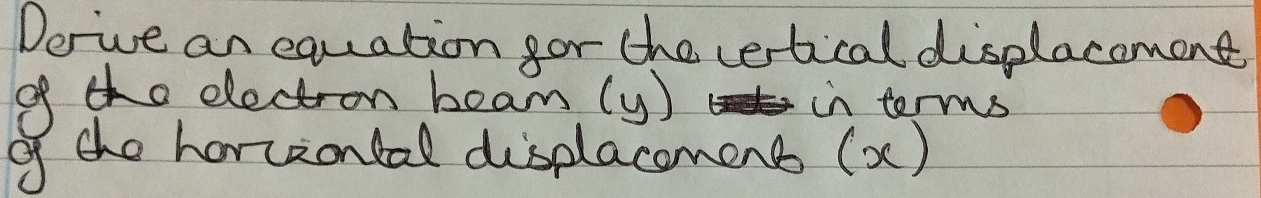 Derive an equation for the vertical displacement
of the electron beam (y) in terms
of the horizontal displacement (x)